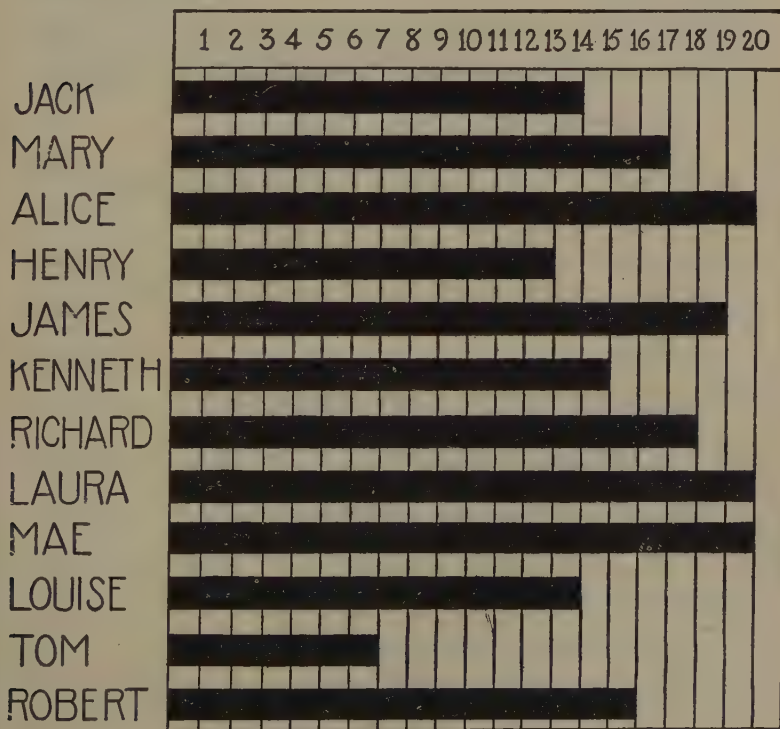 1 2 3 4 5 6 7 8 9 10 11 12 13 14 15 16 17 18 19 20
JACK
MARY
ALICE
HENRY
JAMES
KENNETH
RICHARD
LAURA
MAE
LOUISE
TOM
ROBERT